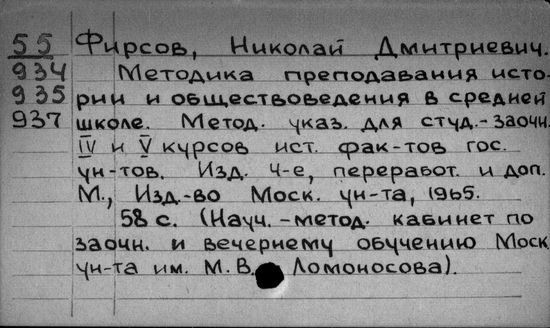 55 Фирсов, Николай Дмитриевич.
934 Методика преподавания исто-
935 рии и обществоведения в средней
937 школе. Метод. указ. для студ.-заочн.
IV и V курсов ист. фак-тов гос.
ун-тов. Изд. 4-е, переработ. и доп.
М., Изд-во Моск. ун-та, 1965.
58 с. (Науч.-метод. кабинет по
заочн. и вечернему обучению Моск.
ун-та им. М.В. Ломоносова).